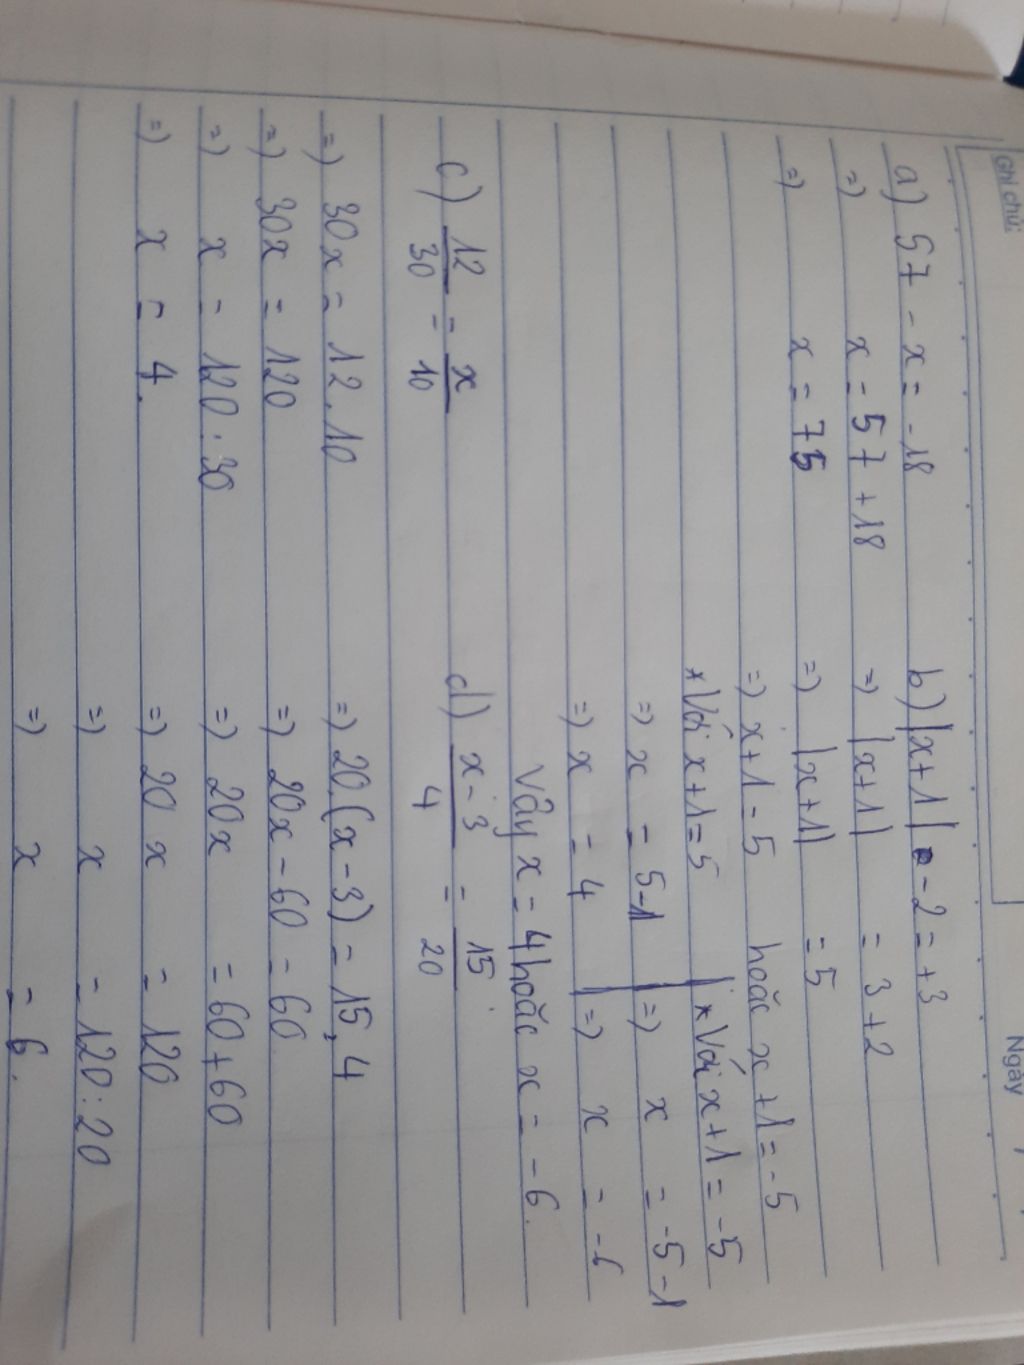 Ghi chú:
Ngày
a) 57 - x = -18
=) x = 57 + 18
=) x = 75
b) |x+1| - 2 = +3
=) |x+1| = 3 + 2
=) |x+1| = 5
=) x+1 = 5 hoặc x+1 = -5
* Với x+1 = 5 | * Với x+1 = -5
=) x = 5-1 | =) x = -5-1
=) x = 4 | =) x = -6
Vậy x = 4 hoặc x = -6.
c) 12/30 = x/10
=) 30x = 12.10
=) 30x = 120
=) x = 120 : 30
=) x = 4.
d) x-3/4 = 15/20
=) 20.(x-3) = 15.4
=) 20x - 60 = 60
=) 20x = 60+60
=) 20x = 120
=) x = 120:20
=) x = 6.